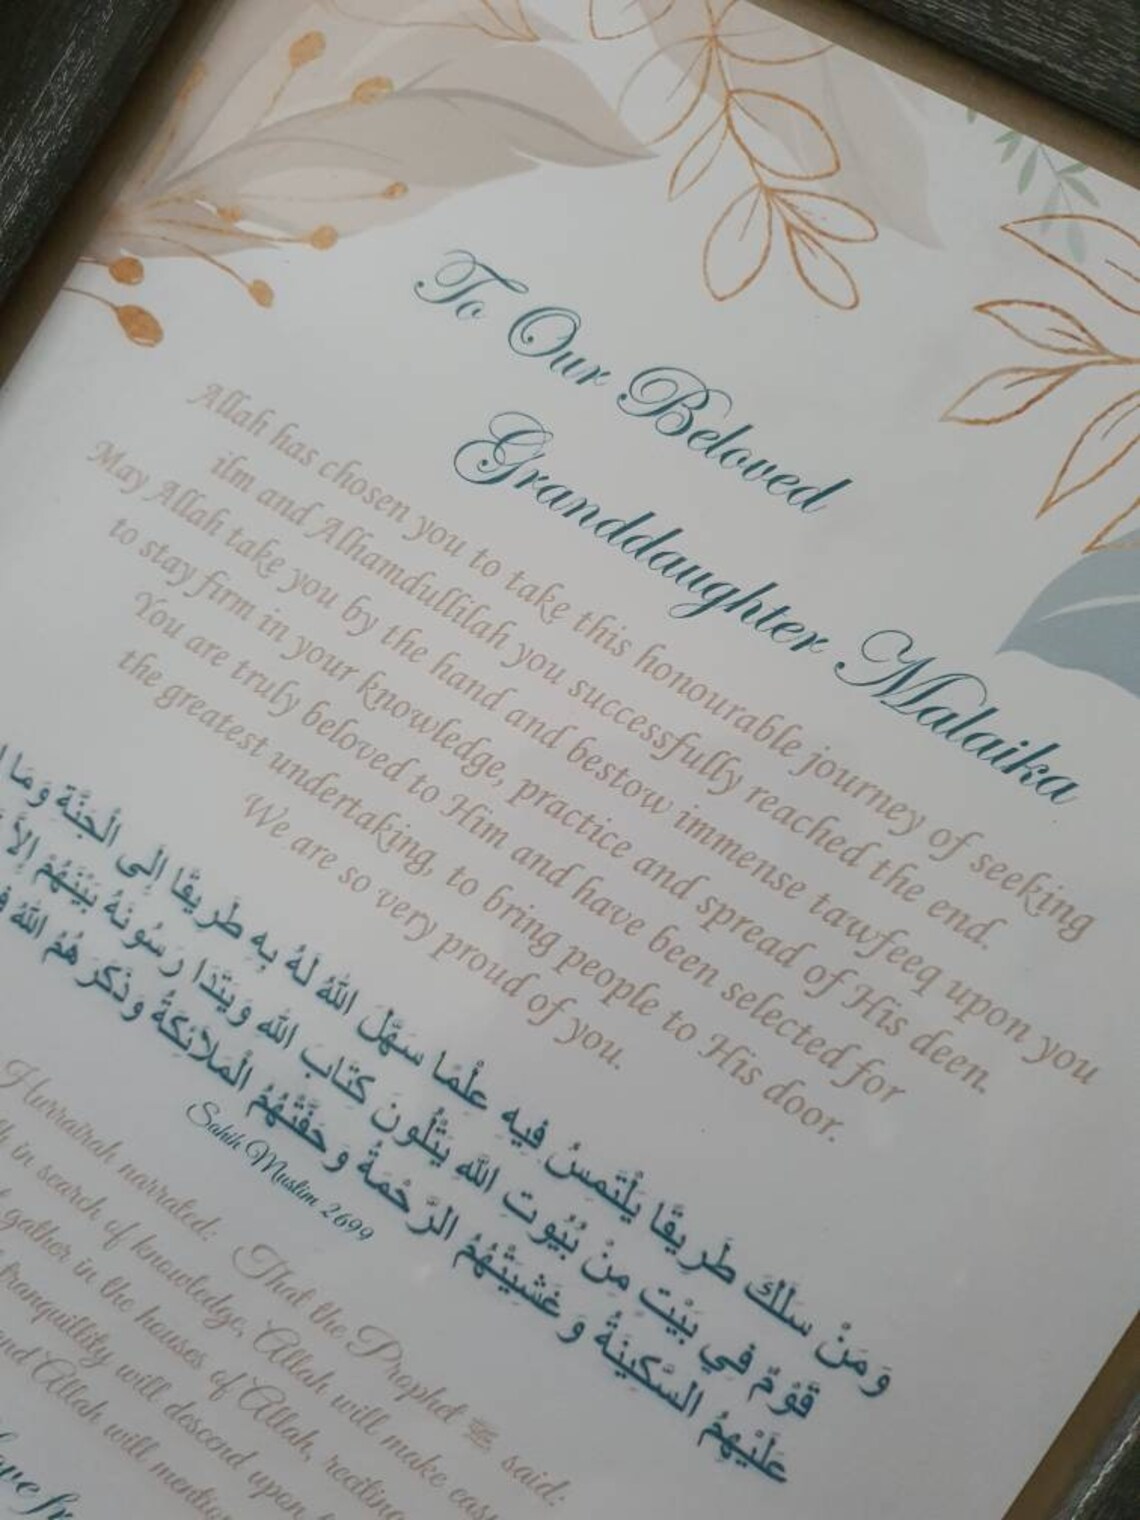 To Our Beloved
Granddaughter Malaika
Allah has chosen you to take this honourable journey of seeking
ilm and Alhamdullilah you successfully reached the end.
May Allah take you by the hand and bestow immense tawfeeq upon you
to stay firm in your knowledge, practice and spread of His deen.
You are truly beloved to Him and have been selected for
the greatest undertaking, to bring people to His door.
We are so very proud of you.
وَمَنْ سَلَكَ طَرِيقًا يَلْتَمِسُ فِيهِ عِلْمًا سَهَّلَ اللَّهُ لَهُ بِهِ طَرِيقًا إِلَى الْجَنَّةِ وَمَا
قَوْمٌ فِي بَيْتٍ مِنْ بُيُوتِ اللَّهِ يَتْلُونَ كِتَابَ اللَّهِ وَيَتَدَا رَسُونَهُ بَيْنَهُمْ إِلاَّ
عَلَيْهِمُ السَّكِينَةُ وَغَشِيَتْهُمُ الرَّحْمَةُ وَحَفَّتْهُمُ الْمَلاَئِكَةُ وَذَكَرَهُمُ اللَّهُ
Sahih Muslim 2699
Hurrairah narrated: That the Prophet ﷺ said:
in search of knowledge, Allah will make easy
gather in the houses of Allah, reciting
tranquillity will descend upon
and Allah will mention